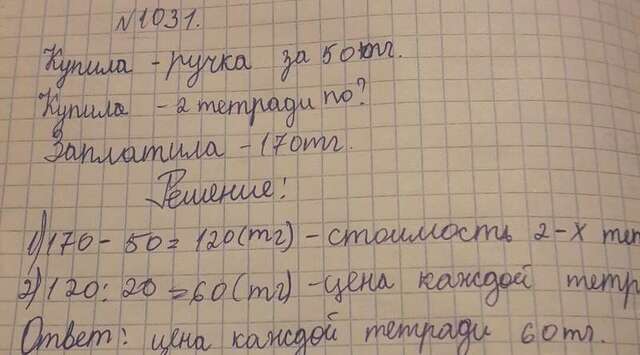 №1031.
Купила - ручка за 50тг.
Купила - 2 тетради по?
Заплатила - 170тг.
Решение:
1) 170 - 50 = 120 (тг) - стоимость 2-х тет
2) 120 : 20 = 60 (тг) - цена каждой тетр
Ответ: цена каждой тетради 60тг.